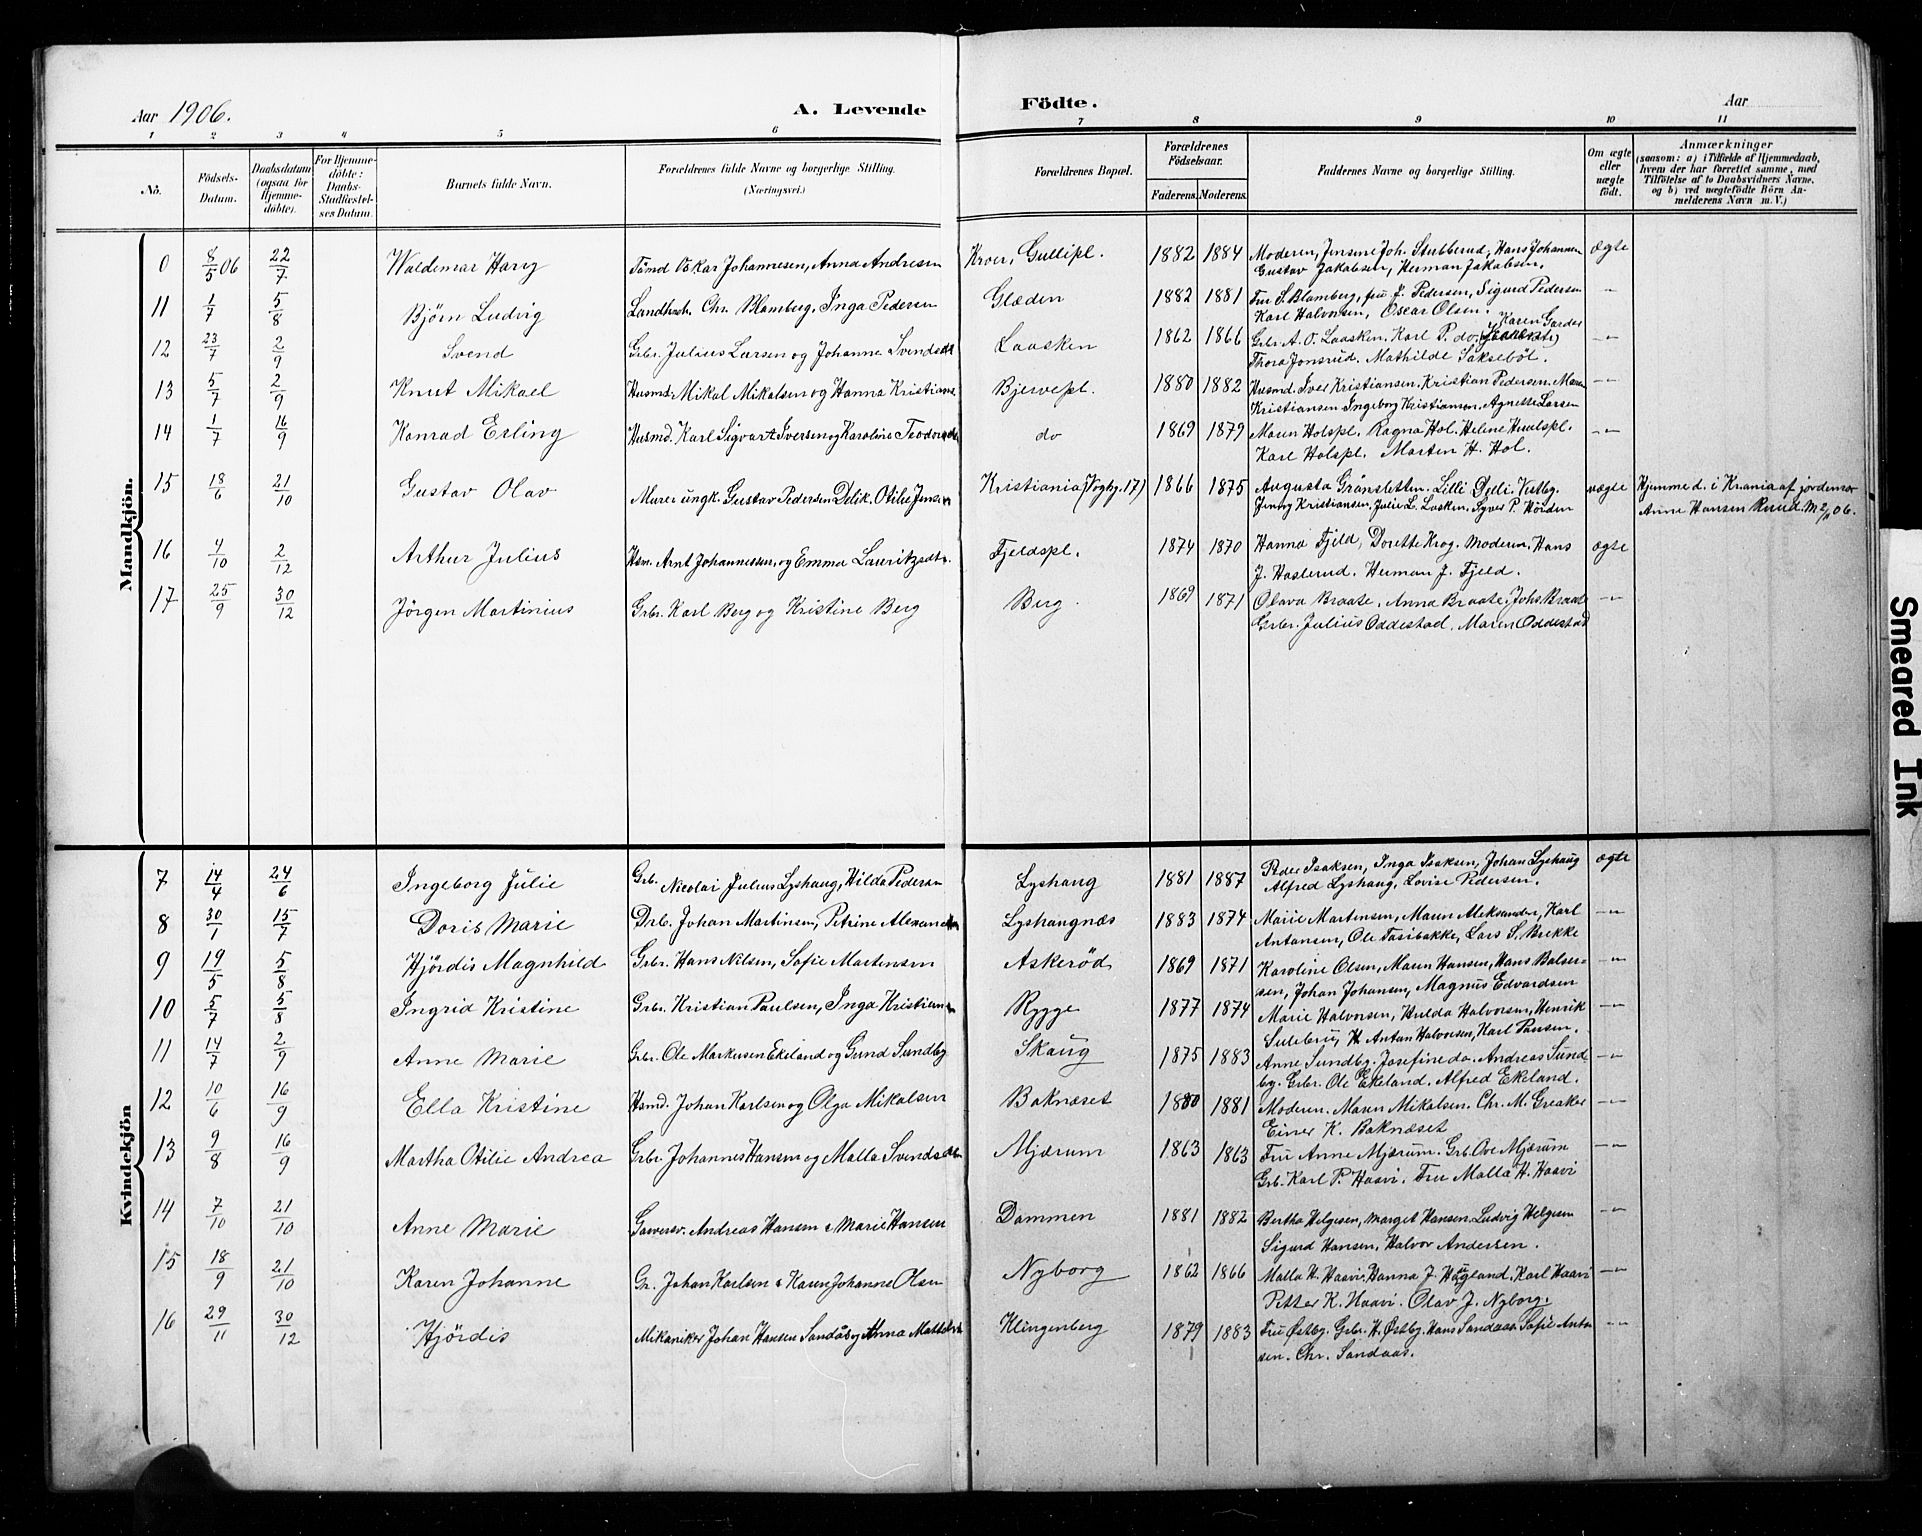 Aar 1906.
A. Levende Födte.
Aar
1 2 3 4 5 6 7 8 9 10 11
No.
Födsels-Datum.
Daabsdatum (ogsaa for Hjemme-döbte).
For Hjemme-döbte: Daabs-Stadfæstel-ses Datum.
Barnets fulde Navn.
Forældrenes fulde Navne og borgerlige Stilling. (Næringsvei.)
Forældrenes Bopæl.
Forældrenes Födselsaar.
Faderens. Moderens.
Faddernes Navne og borgerlige Stilling.
Om ægte eller uægte födt.
Anmærkninger
(saasom: a) i Tilfælde af Hjemmedaab, hvem der har forrettet samme, med Tilföielse af to Daabsvidners Navne, og b) ved uægtefödte Börn An-melderens Navn m. V.)
Mandkjön.
0 8/5 06 22/7 Waldemar Harry Tömd Oskar Johannesen, Anna Andresen Kroer, Gullipl. 1882 1884 Moderen, Jensine Joh. Stubberud, Hans Johannen ægte
Gustav Jakobsen, Herman Jakobsen.
11 1/7 5/8 Björn Ludvig Landh. Chr. Blomberg, Inga Pedersen Glæden 1882 1881 Fru S. Blomberg, fru J. Pedersen, Sigurd Pedersen –"–
Karl Halvorsen, Oscar Olsen.
12 23/7 2/9 Svend Grbr. Julius Larsen og Johanne Svendsdt Laasken 1862 1866 Grbr. A. O. Laasken. Karl P. do. Karen Garder –"–
Thora Jonsrud. Mathilde Sakseböl.
13 5/7 2/9 Knut Mikael Husmd. Mikal Mikalsen og Hanna Kristians Bjervepl. 1880 1882 Husmd. Iver Kristiansen. Kristian Pedersen. Maren –"–
Kristiansen Ingeborg Kristiansen. Agnette Larsen
14 1/7 16/9 Konrad Erling Husmd. Karl Sigvart Iversen og Karoline Teodors do 1869 1879 Maren Holspl. Ragna Hol. Helene Hualspl. –"–
Karl Holspl. Morten H. Hol.
15 18/6 21/10 Gustav Olav Murer ungk. Gustav Pedersen Delik. Otilie Jensen Kristiania (Vogtsg. 17) 1866 1875 Augusta Grönsletten. Lilli Deli. Vestby. uægte Hjemme d. i Krania af jordemor
Jenny Kristiansen. Julie L. Lasken. Syver P. Horden Anne Hansen Ruud. M 2/11 06.
16 4/10 2/12 Arthur Julius Hsm. Arnt Johannessen, og Emma Lauritzsdtr. Fjeldspl. 1874 1870 Hanna Fjeld, Dorette Krog. Moderen, Hans ægte
J. Haslerud. Herman J. Fjeld.
17 25/9 30/12 Jörgen Martinius Grbr. Karl Berg og Kristine Berg Berg. 1869 1871 Olava Braate. Anna Braate. Johs Braate –"–
Grbr. Julius Oddestad. Maren Oddestad
Kvindekjön
7 14/4 24/6 Ingeborg Julie Grb. Nicolai Julius Lyshaug, Hilda Pedersen Lyshaug 1881 1887 Peder Isaksen, Inga Isaksen, Johan Lyshaug ægte
Alfred Lyshaug, Lovise Pedersen.
8 30/1 15/7 Doris Marie Drb. Johan Martinsen, Petrine Alexander Lyshaugnæs 1883 1874 Marie Martensen, Maren Aleksander, Karl –"–
Antonsen, Ole Tasibakke, Lars S. Brekke
9 19/5 5/8 Hjördis Magnhild Grbr. Hans Nilsen, Sofie Martensen Askeröd 1869 1871 Karoline Olsen, Maren Hansen, Hans Balser- –"–
sen, Johan Johansen, Magnus Edvardsen
10 5/7 5/8 Ingrid Kristine Grbr. Kristian Paulsen, Inga Kristiansen Rygge 1877 1874 Marie Halvorsen, Hulda Halvorsen, Henrik –"–
Sulebru, H. Anton Halvorsen, Karl Paasen.
11 14/7 2/9 Anne Marie Grbr. Ole Markusen Ekeland og Gund Sundby Skaug 1875 1883 Anne Sundby. Josefine do. Andreas Sund- –"–
by. Grbr. Ole Ekeland. Alfred Ekeland.
12 10/6 16/9 Ella Kristine Hsmd. Johan Karlsen og Olga Mikalsen Baknæset 1880 1881 Moderen. Maren Mikalsen. Chr. M. Greaker –"–
Einer K. Baknæset
13 9/8 16/9 Martha Otilie Andrea Grbr. Johannes Hansen og Malla Svendsdtr Mjærum 1863 1863 Fru Anne Mjærum. Grb. Ove Mjærum –"–
Grb. Karl P. Haavi. Fru Malla H. Haavi
14 7/10 21/10 Anne Marie Garversv. Andreas Hansen & Marie Hansen Dammen 1881 1882 Bertha Helgesen, Marget Hansen. Ludvig Helgesen –"–
Sigurd Hansen, Halvor Andersen.
15 18/9 21/10 Karen Johanne Gr. Johan Karlsen & Karen Johanne Olsen Nyborg 1862 1866 Malla H. Haavi, Hanna J. Haugland. Karl Haavi –"–
Petter K. Haavi. Olav J. Nyborg.
16 29/11 30/12 Hjördis Mikaniker Johan Hansen Sandås og Anna Klingenberg 1879 1883 Fru Østby. Grbr. H. Østby. Hans Sandaas. Sofie Anton –"–
sen. Chr. Sandaas.
Smeared Ink